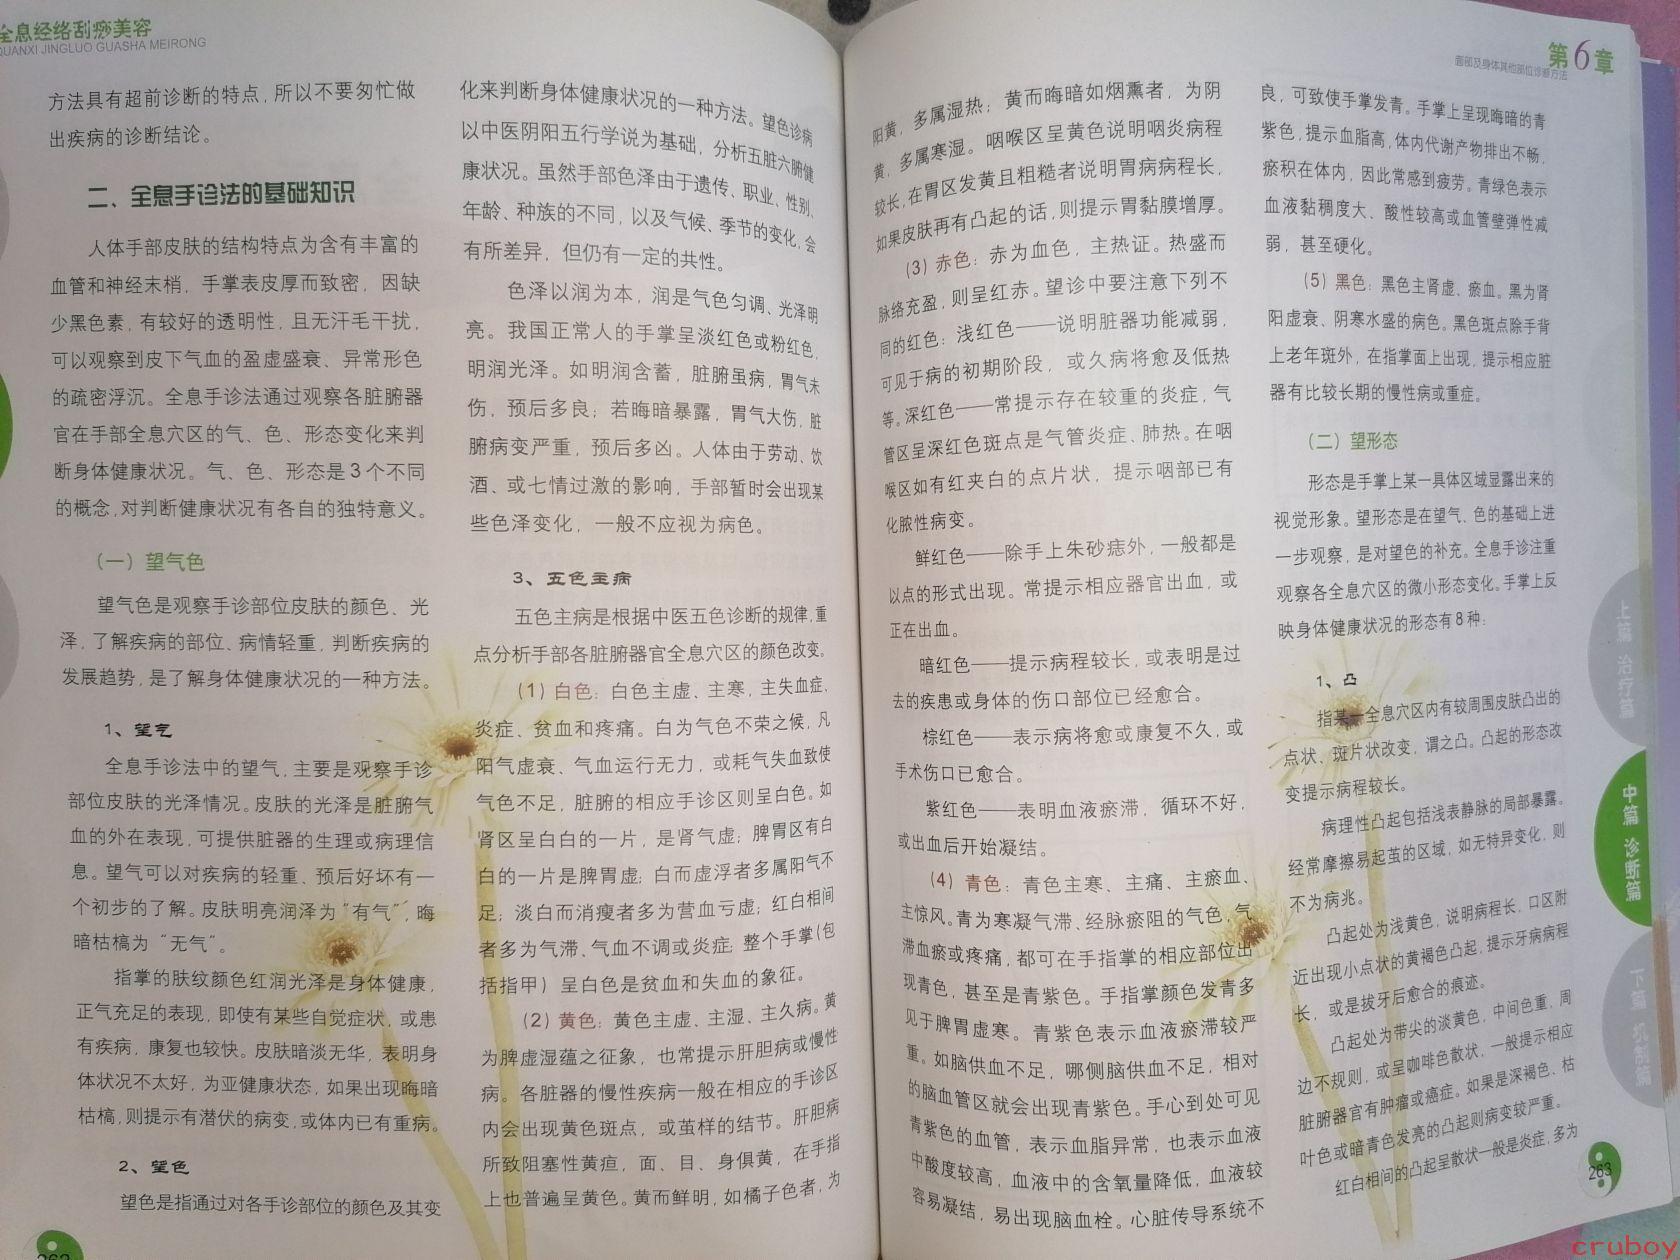 全息经络刮痧美容
QUANXI JINGLUO GUASHA MEIRONG
方法具有超前诊断的特点，所以不要匆忙做
出疾病的诊断结论。
二、全息手诊法的基础知识
人体手部皮肤的结构特点为含有丰富的
血管和神经末梢，手掌表皮厚而致密，因缺
少黑色素，有较好的透明性，且无汗毛干扰，
可以观察到皮下气血的盈虚盛衰、异常形色
的疏密浮沉。全息手诊法通过观察各脏腑器
官在手部全息穴区的气、色、形态变化来判
断身体健康状况。气、色、形态是3个不同
的概念，对判断健康状况有各自的独特意义。
（一）望气色
望气色是观察手诊部位皮肤的颜色、光
泽，了解疾病的部位、病情轻重，判断疾病的
发展趋势，是了解身体健康状况的一种方法。
1、望气
全息手诊法中的望气，主要是观察手诊
部位皮肤的光泽情况。皮肤的光泽是脏腑气
血的外在表现，可提供脏器的生理或病理信
息。望气可以对疾病的轻重、预后好坏有一
个初步的了解。皮肤明亮润泽为“有气”，晦
暗枯槁为“无气”。
指掌的肤纹颜色红润光泽是身体健康，
正气充足的表现，即使有某些自觉症状，或患
有疾病，康复也较快。皮肤暗淡无华，表明身
体状况不太好，为亚健康状态，如果出现晦暗
枯槁，则提示有潜伏的病变，或体内已有重病。
2、望色
望色是指通过对各手诊部位的颜色及其变
化来判断身体健康状况的一种方法。望色诊病
以中医阴阳五行学说为基础，分析五脏六腑健
康状况。虽然手部色泽由于遗传、职业、性别、
年龄、种族的不同，以及气候、季节的变化，会
有所差异，但仍有一定的共性。
色泽以润为本，润是气色匀调、光泽明
亮。我国正常人的手掌呈淡红色或粉红色，
明润光泽。如明润含蓄，脏腑虽病，胃气未
伤，预后多良；若晦暗暴露，胃气大伤，脏
腑病变严重，预后多凶。人体由于劳动、饮
酒、或七情过激的影响，手部暂时会出现某
些色泽变化，一般不应视为病色。
3、五色主病
五色主病是根据中医五色诊断的规律，重
点分析手部各脏腑器官全息穴区的颜色改变。
（1）白色：白色主虚、主寒，主失血症，
炎症、贫血和疼痛。白为气色不荣之候，凡
阳气虚衰、气血运行无力，或耗气失血致使
气色不足，脏腑的相应手诊区则呈白色。如
肾区呈白白的一片，是肾气虚；脾胃区有白
白的一片是脾胃虚；白而虚浮者多属阳气不
足；淡白而消瘦者多为营血亏虚；红白相间
者多为气滞、气血不调或炎症；整个手掌（包
括指甲）呈白色是贫血和失血的象征。
（2）黄色：黄色主虚、主湿、主久病。黄
为脾虚湿蕴之征象，也常提示肝胆病或慢性
病。各脏器的慢性疾病一般在相应的手诊区
内会出现黄色斑点，或茧样的结节。肝胆病
所致阻塞性黄疸，面、目、身俱黄，在手指
上也普遍呈黄色。黄而鲜明，如橘子色者，为
第6章
面部及身体其他部位诊断方法
阳黄，多属湿热；黄而晦暗如烟熏者，为阴
黄，多属寒湿。咽喉区呈黄色说明咽炎病程
较长，在胃区发黄且粗糙者说明胃病病程长，
如果皮肤再有凸起的话，则提示胃黏膜增厚。
（3）赤色：赤为血色，主热证。热盛而
脉络充盈，则呈红赤。望诊中要注意下列不
同的红色：浅红色——说明脏器功能减弱，
可见于病的初期阶段，或久病将愈及低热
等。深红色——常提示存在较重的炎症，气
管区呈深红色斑点是气管炎症、肺热。在咽
喉区如有红夹白的点片状，提示咽部已有
化脓性病变。
鲜红色——除手上朱砂痣外，一般都是
以点的形式出现。常提示相应器官出血，或
正在出血。
暗红色——提示病程较长，或表明是过
去的疾患或身体的伤口部位已经愈合。
棕红色——表示病将愈或康复不久，或
手术伤口已愈合。
紫红色——表明血液瘀滞，循环不好，
或出血后开始凝结。
（4）青色：青色主寒、主痛、主瘀血、
主惊风。青为寒凝气滞、经脉瘀阻的气色，气
滞血瘀或疼痛，都可在手指掌的相应部位出
现青色，甚至是青紫色。手指掌颜色发青多
见于脾胃虚寒。青紫色表示血液瘀滞较严
重。如脑供血不足，哪侧脑供血不足，相对
的脑血管区就会出现青紫色。手心到处可见
青紫色的血管，表示血脂异常，也表示血液
中酸度较高，血液中的含氧量降低，血液较
容易凝结，易出现脑血栓。心脏传导系统不
良，可致使手掌发青。手掌上呈现晦暗的青
紫色，提示血脂高，体内代谢产物排出不畅，
瘀积在体内，因此常感到疲劳。青绿色表示
血液黏稠度大、酸性较高或血管壁弹性减
弱，甚至硬化。
（5）黑色：黑色主肾虚、瘀血。黑为肾
阳虚衰、阴寒水盛的病色。黑色斑点除手背
上老年斑外，在指掌面上出现，提示相应脏
器有比较长期的慢性病或重症。
（二）望形态
形态是手掌上某一具体区域显露出来的
视觉形象。望形态是在望气、色的基础上进
一步观察，是对望色的补充。全息手诊注重
观察各全息穴区的微小形态变化。手掌上反
映身体健康状况的形态有8种：
1、凸
指某一全息穴区内有较周围皮肤凸出的
点状、斑片状改变，谓之凸。凸起的形态改
变提示病程较长。
病理性凸起包括浅表静脉的局部暴露。
经常摩擦易起茧的区域，如无特异变化，则
不为病兆。
凸起处为浅黄色，说明病程长，口区附
近出现小点状的黄褐色凸起，提示牙病病程
长，或是拔牙后愈合的痕迹。
凸起处为带尖的淡黄色，中间色重，周
边不规则，或呈咖啡色散状，一般提示相应
脏腑器官有肿瘤或癌症。如果是深褐色、枯
叶色或暗青色发亮的凸起则病变较严重。
红白相间的凸起呈散状一般是炎症，多为
上篇 治疗篇
中篇 诊断篇
下篇
263
cruboy